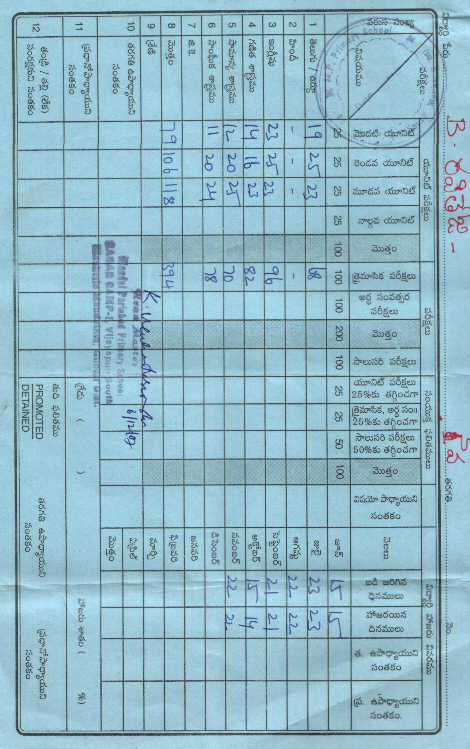 విద్యార్థి పేరు B. రవితేజ - తరగతి నెం.
వరుస సంఖ్య
పరీక్షలు
విషయము
1 తెలుగు / ఉర్దూ
2 హిందీ
3 ఇంగ్లీషు
4 గణిత శాస్త్రము
5 సామాన్య శాస్త్రము
6 సాంఘిక శాస్త్రము
7 జి.కె.
8 మొత్తం
9 గ్రేడ్
10 తరగతి ఉపాధ్యాయుని సంతకం
11 ప్రధానోపాధ్యాయుని సంతకం
12 తండ్రి / తల్లి (లేక) సంరక్షకుని సంతకం
యూనిట్ పరీక్షలు
మొదటి యూనిట్ 25 19 - 23 14 12 11 79
రెండవ యూనిట్ 25 25 - 25 16 20 20 106
మూడవ యూనిట్ 25 23 - 23 23 25 24 118
నాల్గవ యూనిట్ 25
మొత్తం 100
పరీక్షలు
త్రైమాసిక పరీక్షలు 100 68 - 96 82 70 78 394
అర్ధ సంవత్సర పరీక్షలు 100
మొత్తం 200
సాలుసరి పరీక్షలు 100
సంయుక్త ఫలితములు
యూనిట్ పరీక్షలు 25%కు తగ్గించగా 25
త్రైమాసిక, అర్ధ సం॥ 25%కు తగ్గించగా 25
సాలుసరి పరీక్షలు 50%కు తగ్గించగా 50
మొత్తం 100
విషయోపాధ్యాయుని సంతకం
Head Master
6/12/02
గ్రేడు ( )
తుది ఫలితము
PROMOTED
DETAINED
విద్యార్థి హాజరు వివరము
నెలలు జూన్ జులై ఆగష్టు సెప్టెంబర్ అక్టోబర్ నవంబర్ డిసెంబర్ జనవరి ఫిబ్రవరి మార్చి ఏప్రిల్ మొత్తం
బడి జరిగిన దినములు 15 23 22 21 15 22
హాజరయిన దినములు 15 23 22 21 14
త. ఉపాధ్యాయుని సంతకం
ప్ర. ఉపాధ్యాయుని సంతకం.
హాజరు శాతం ( %)
తరగతి ఉపాధ్యాయుని సంతకం
ప్రధానోపాధ్యాయుని సంతకం